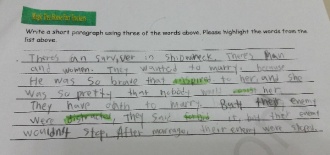 Write a short paragraph using three of the words above. Please highlight the words from the
list above.
Theres an survivor in Shipwreck. Theres Man
and women. They wanted to marry, because
He was so brave that to her and she
was so pretty that nobody would her
They have oath to marry. But their enemy
were distracted, they said it, but the enemy
wouldn't stop. After marriage, their enemy were